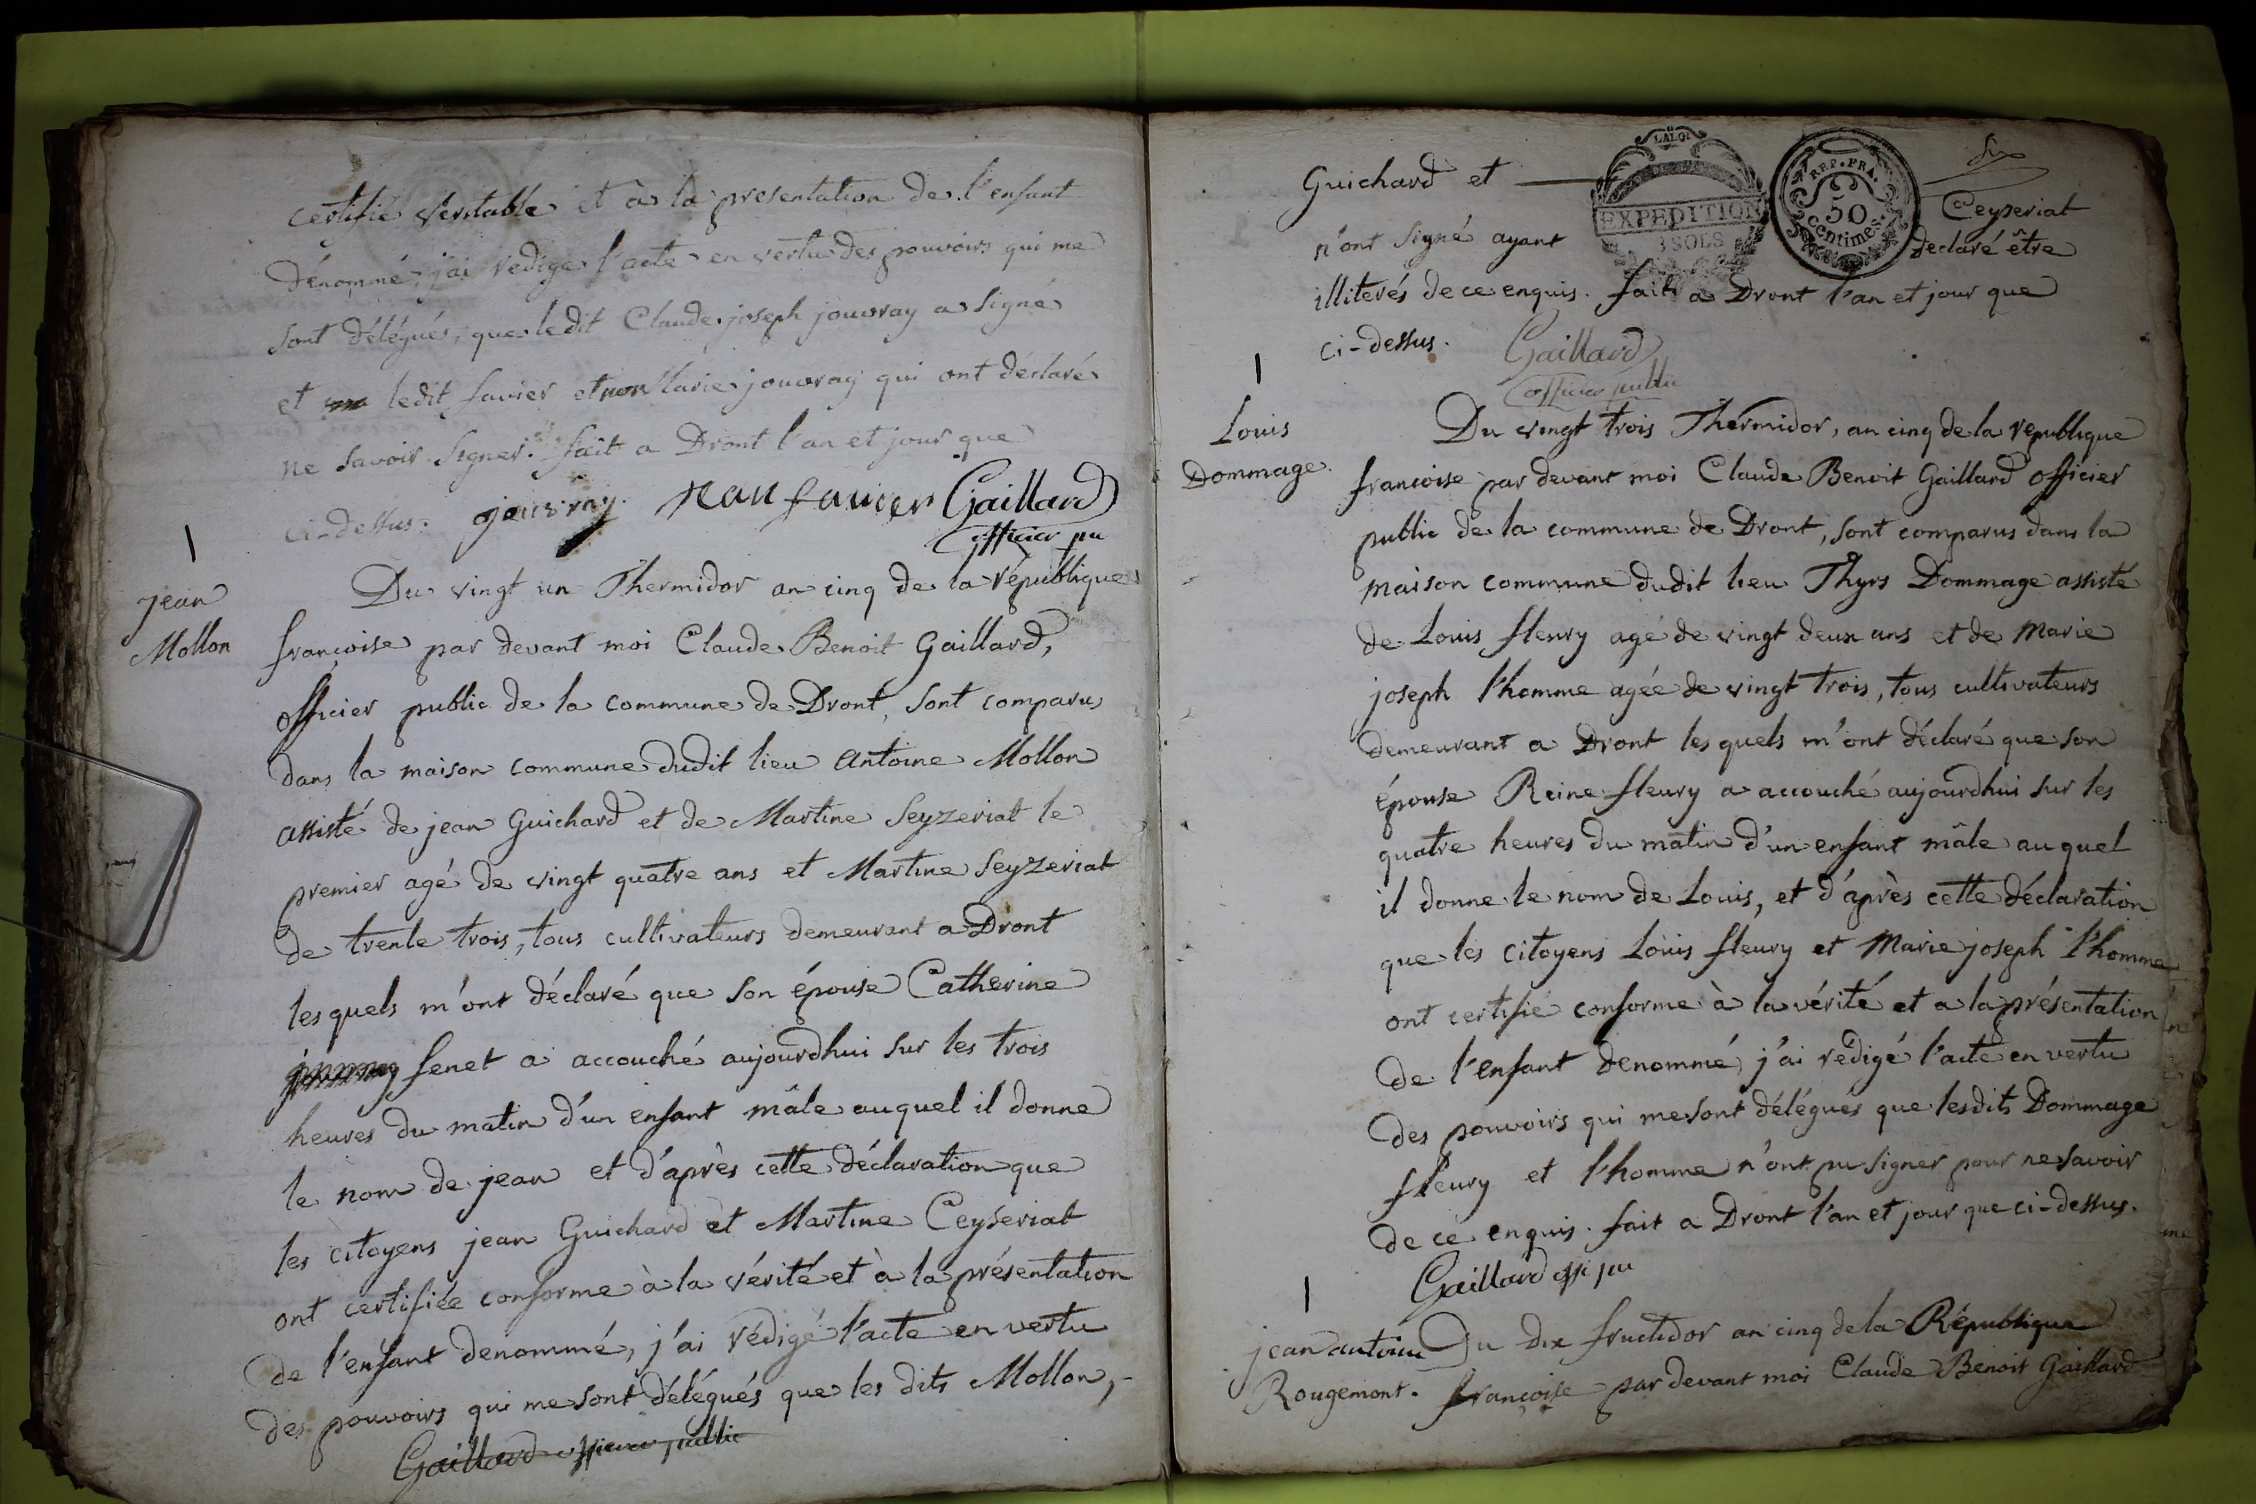 certifié véritable et à la presentation de l'enfant
dénommé, j'ai redigé l'acte en vertu des pouvoirs qui me
sont délégués, que ledit Claude joseph jouvray a signé
et ledit favier et non Marie jouvray qui ont déclaré
ne savoir signer. fait a Dront l'an et jour que
ci-dessus. jouvray. jean favier Gaillard
officier pu
Jean
Mollon
Du vingt un Thermidor an cinq de la république
françoise par devant moi Claude Benoit Gaillard,
officier public de la commune de Dront, sont comparus
dans la maison commune dudit lieu Antoine Mollon
assisté de jean Guichard et de Martine Seyzeriat le
premier agé de vingt quatre ans et Martine Seyzeriat
de trente trois, tous cultivateurs demeurant a Dront
les quels m'ont déclaré que son épouse Catherine
fenet a accouché aujourdhui sur les trois
heures du matin d'un enfant mâle auquel il donne
le nom de jean et d'après cette déclaration que
les citoyens jean Guichard et Martine Ceyseriat
ont certifiée conforme à la vérité et à la présentation
de l'enfant denommé, j'ai rédigé l'acte en vertu
des pouvoirs qui me sont délégués que les dits Mollon,
Gaillard officier public
LA LOI
EXPEDITION
3 SOLS
REP. FRA.
50
Centimes
dix
Guichard et Ceyzeriat
n'ont signé ayant declaré être
illiterés de ce enquis. fait a Dront l'an et jour que
ci-dessus. Gaillard
officier public
Louis
Dommage.
Du vingt trois Thermidor, an cinq de la republique
francoise par devant moi Claude Benoit Gaillard officier
public de la commune de Dront, sont comparus dans la
maison commune dudit lieu Thyrs Dommage assisté
de Louis fleury agé de vingt deux ans et de Marie
joseph l'homme agée de vingt trois, tous cultivateurs
demeurant a Dront les quels m'ont déclaré que son
épouse Reine fleury a accouché aujourdhui sur les
quatre heures du matin d'un enfant mâle au quel
il donne le nom de Louis, et d'après cette déclaration
que les citoyens Louis fleury et Marie joseph l'homme
ont certifié conforme à la vérité et a la présentation
de l'enfant denommé, j'ai rédigé l'acte en vertu
des pouvoirs qui me sont délégués que lesdits Dommage
fleury et l'homme n'ont pu signer pour ne savoir
de ce enquis. fait a Dront l'an et jour que ci-dessus.
Gaillard offi pu
jean antoine
Rougemont.
Du dix fructidor an cinq de la République
françoise par devant moi Claude Benoit Gaillard